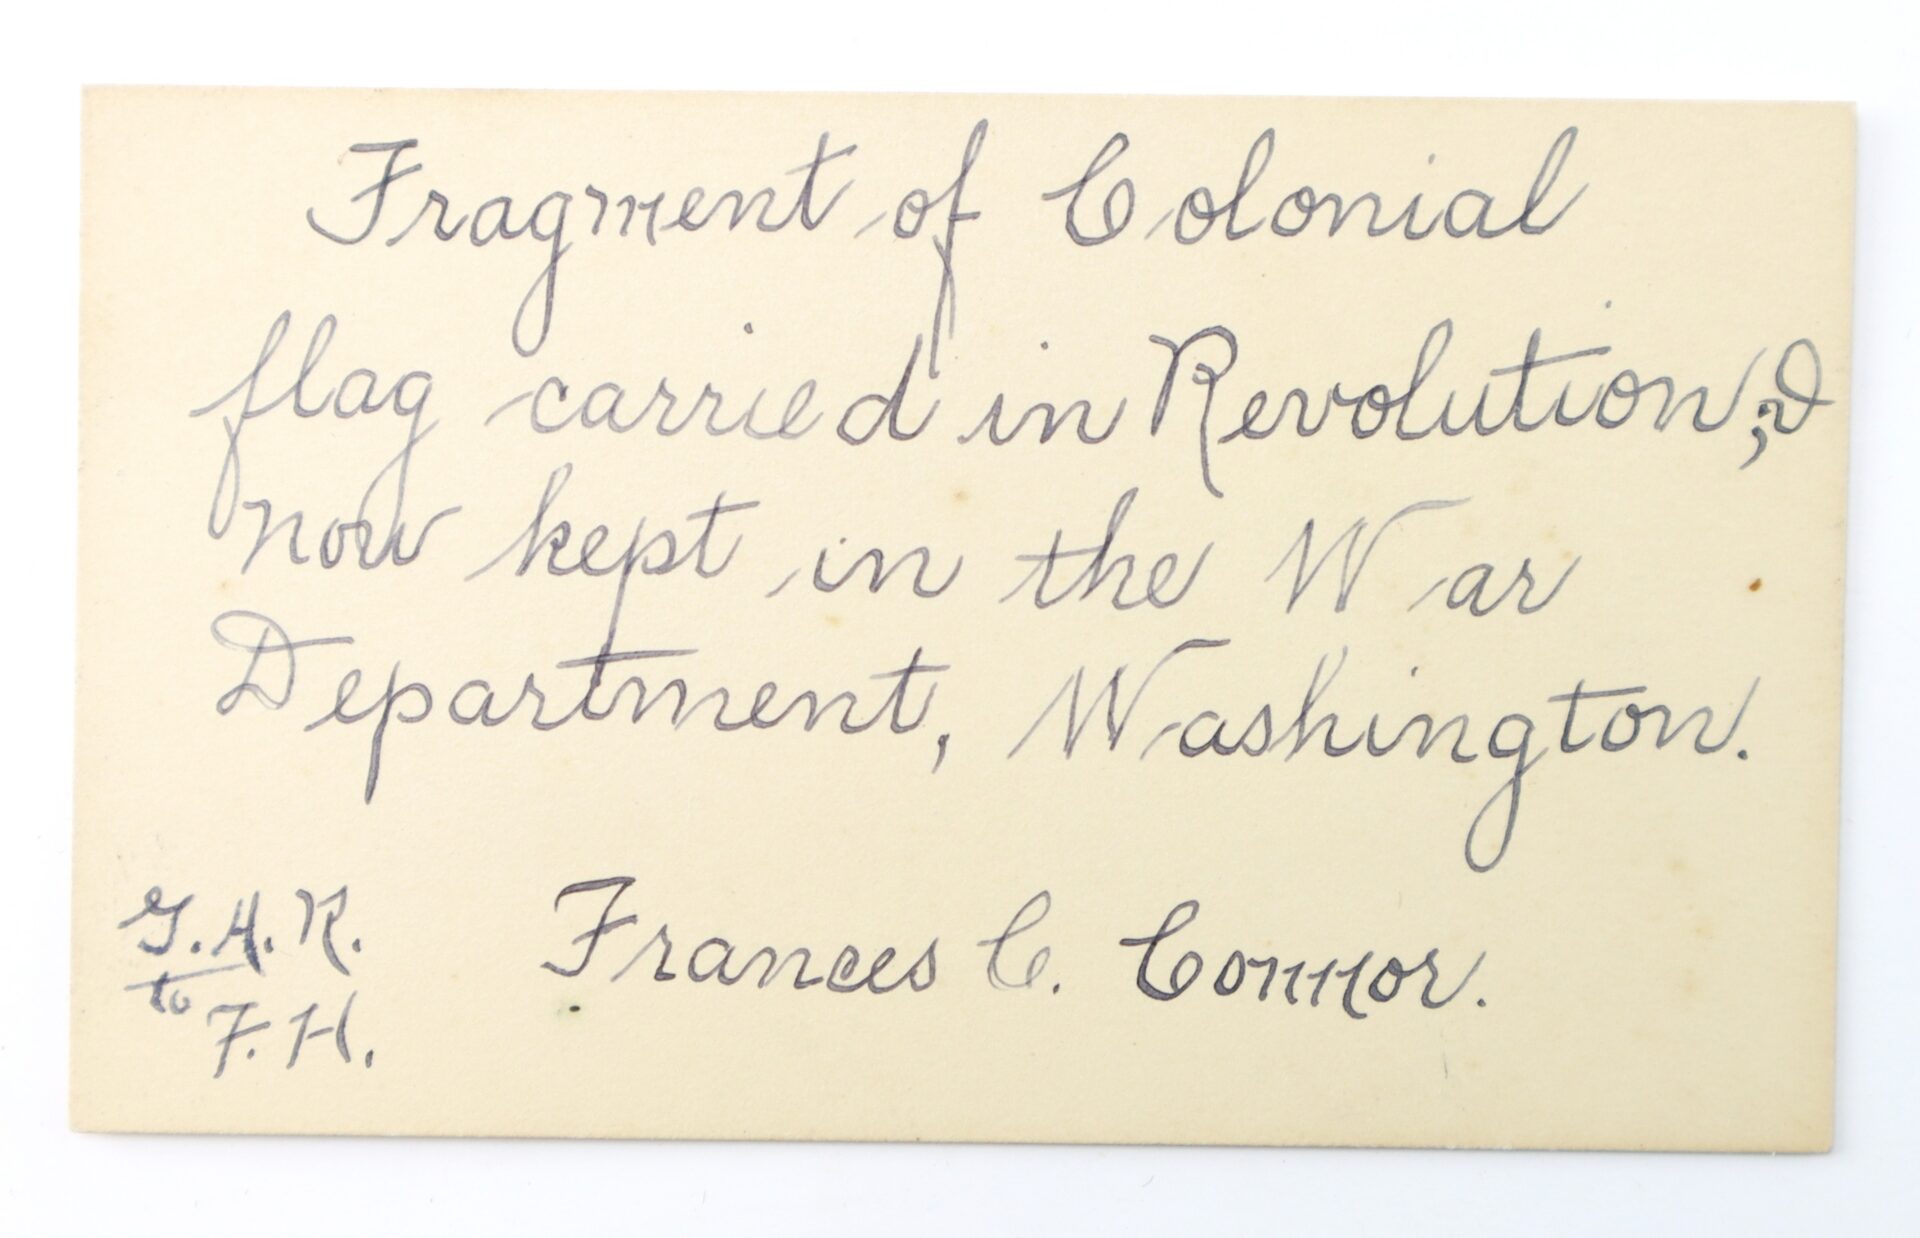 Fragment of Colonial
flag carried in Revolution;
now kept in the War
Department, Washington.
Frances C. Connor.
G.H.R.
to
F.H.